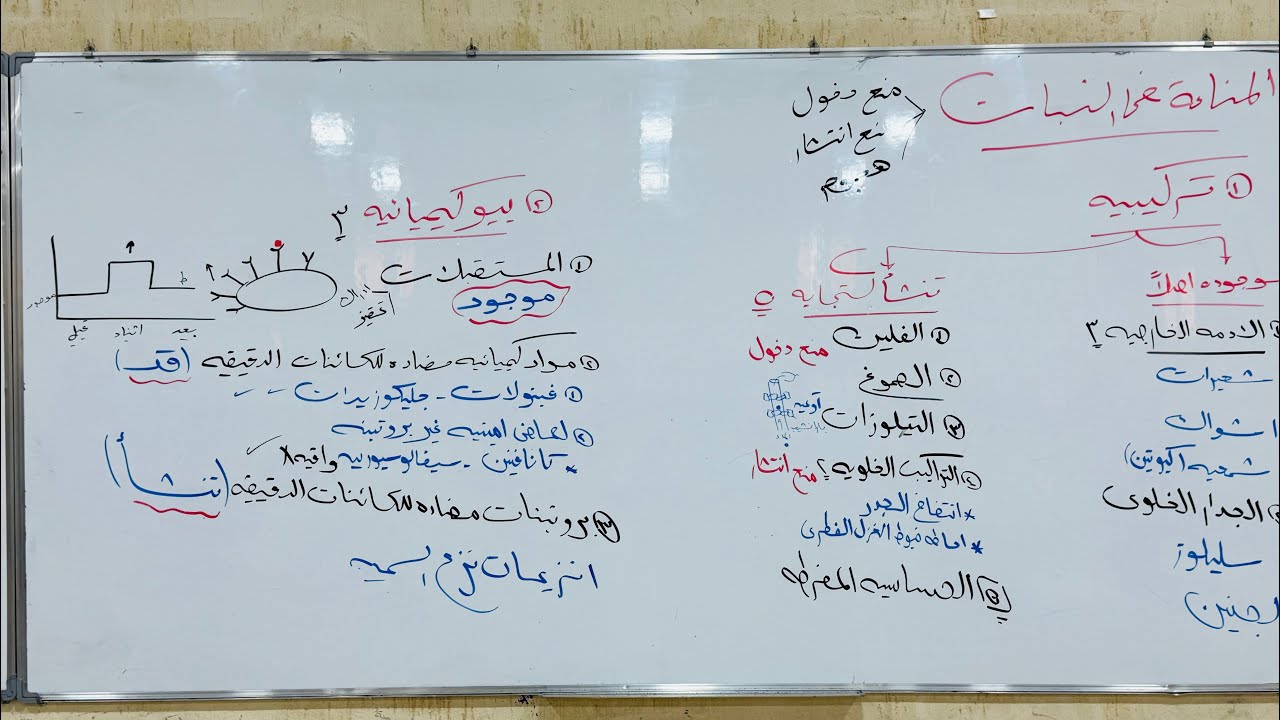 المناعة في النبات
منع دخول
منع انتشار
① تركيبيه
موجوده اصلاً
① الادمه الخارجيه ٣
شعيرات
اشواك
شمعيه (كيوتين)
الجدار الخلوى
سليلوز
لجنين
تنشأ استجابه ٥
① الفلين منع دخول
② الصموغ
③ التيلوزات أوعيه
④ التراكيب الخلويه؟ منع انتشار
* انتفاخ الجدر
* احاطه خيوط الغزل الفطرى
⑤ الحساسيه المفرطه
② بيوكيميائيه ٣
① المستقبلات
موجود
تحفيز
قبل اثناء بعد
② مواد كيميائيه مضاده للكائنات الدقيقه (قد)
① فينولات - جليكوزيدات
② احماض امينيه غير بروتينه
* كانافنين - سيفالوسبورين واقيه
③ بروتينات مضاده للكائنات الدقيقه (تنشأ)
انزيمات نزع السميه